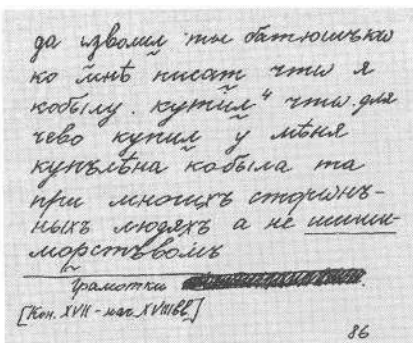 да изволил ты батюшъко
ко мнѣ писат что я
кобылу. купил ч что для
чево купил у мѣня
купълѣна кобыла та
при многихъ сторонъ-
ныхъ людяхъ а не шиши-
морствъвомъ
Грамотки
[Кон. XVII - нач. XVIII вв.]
86